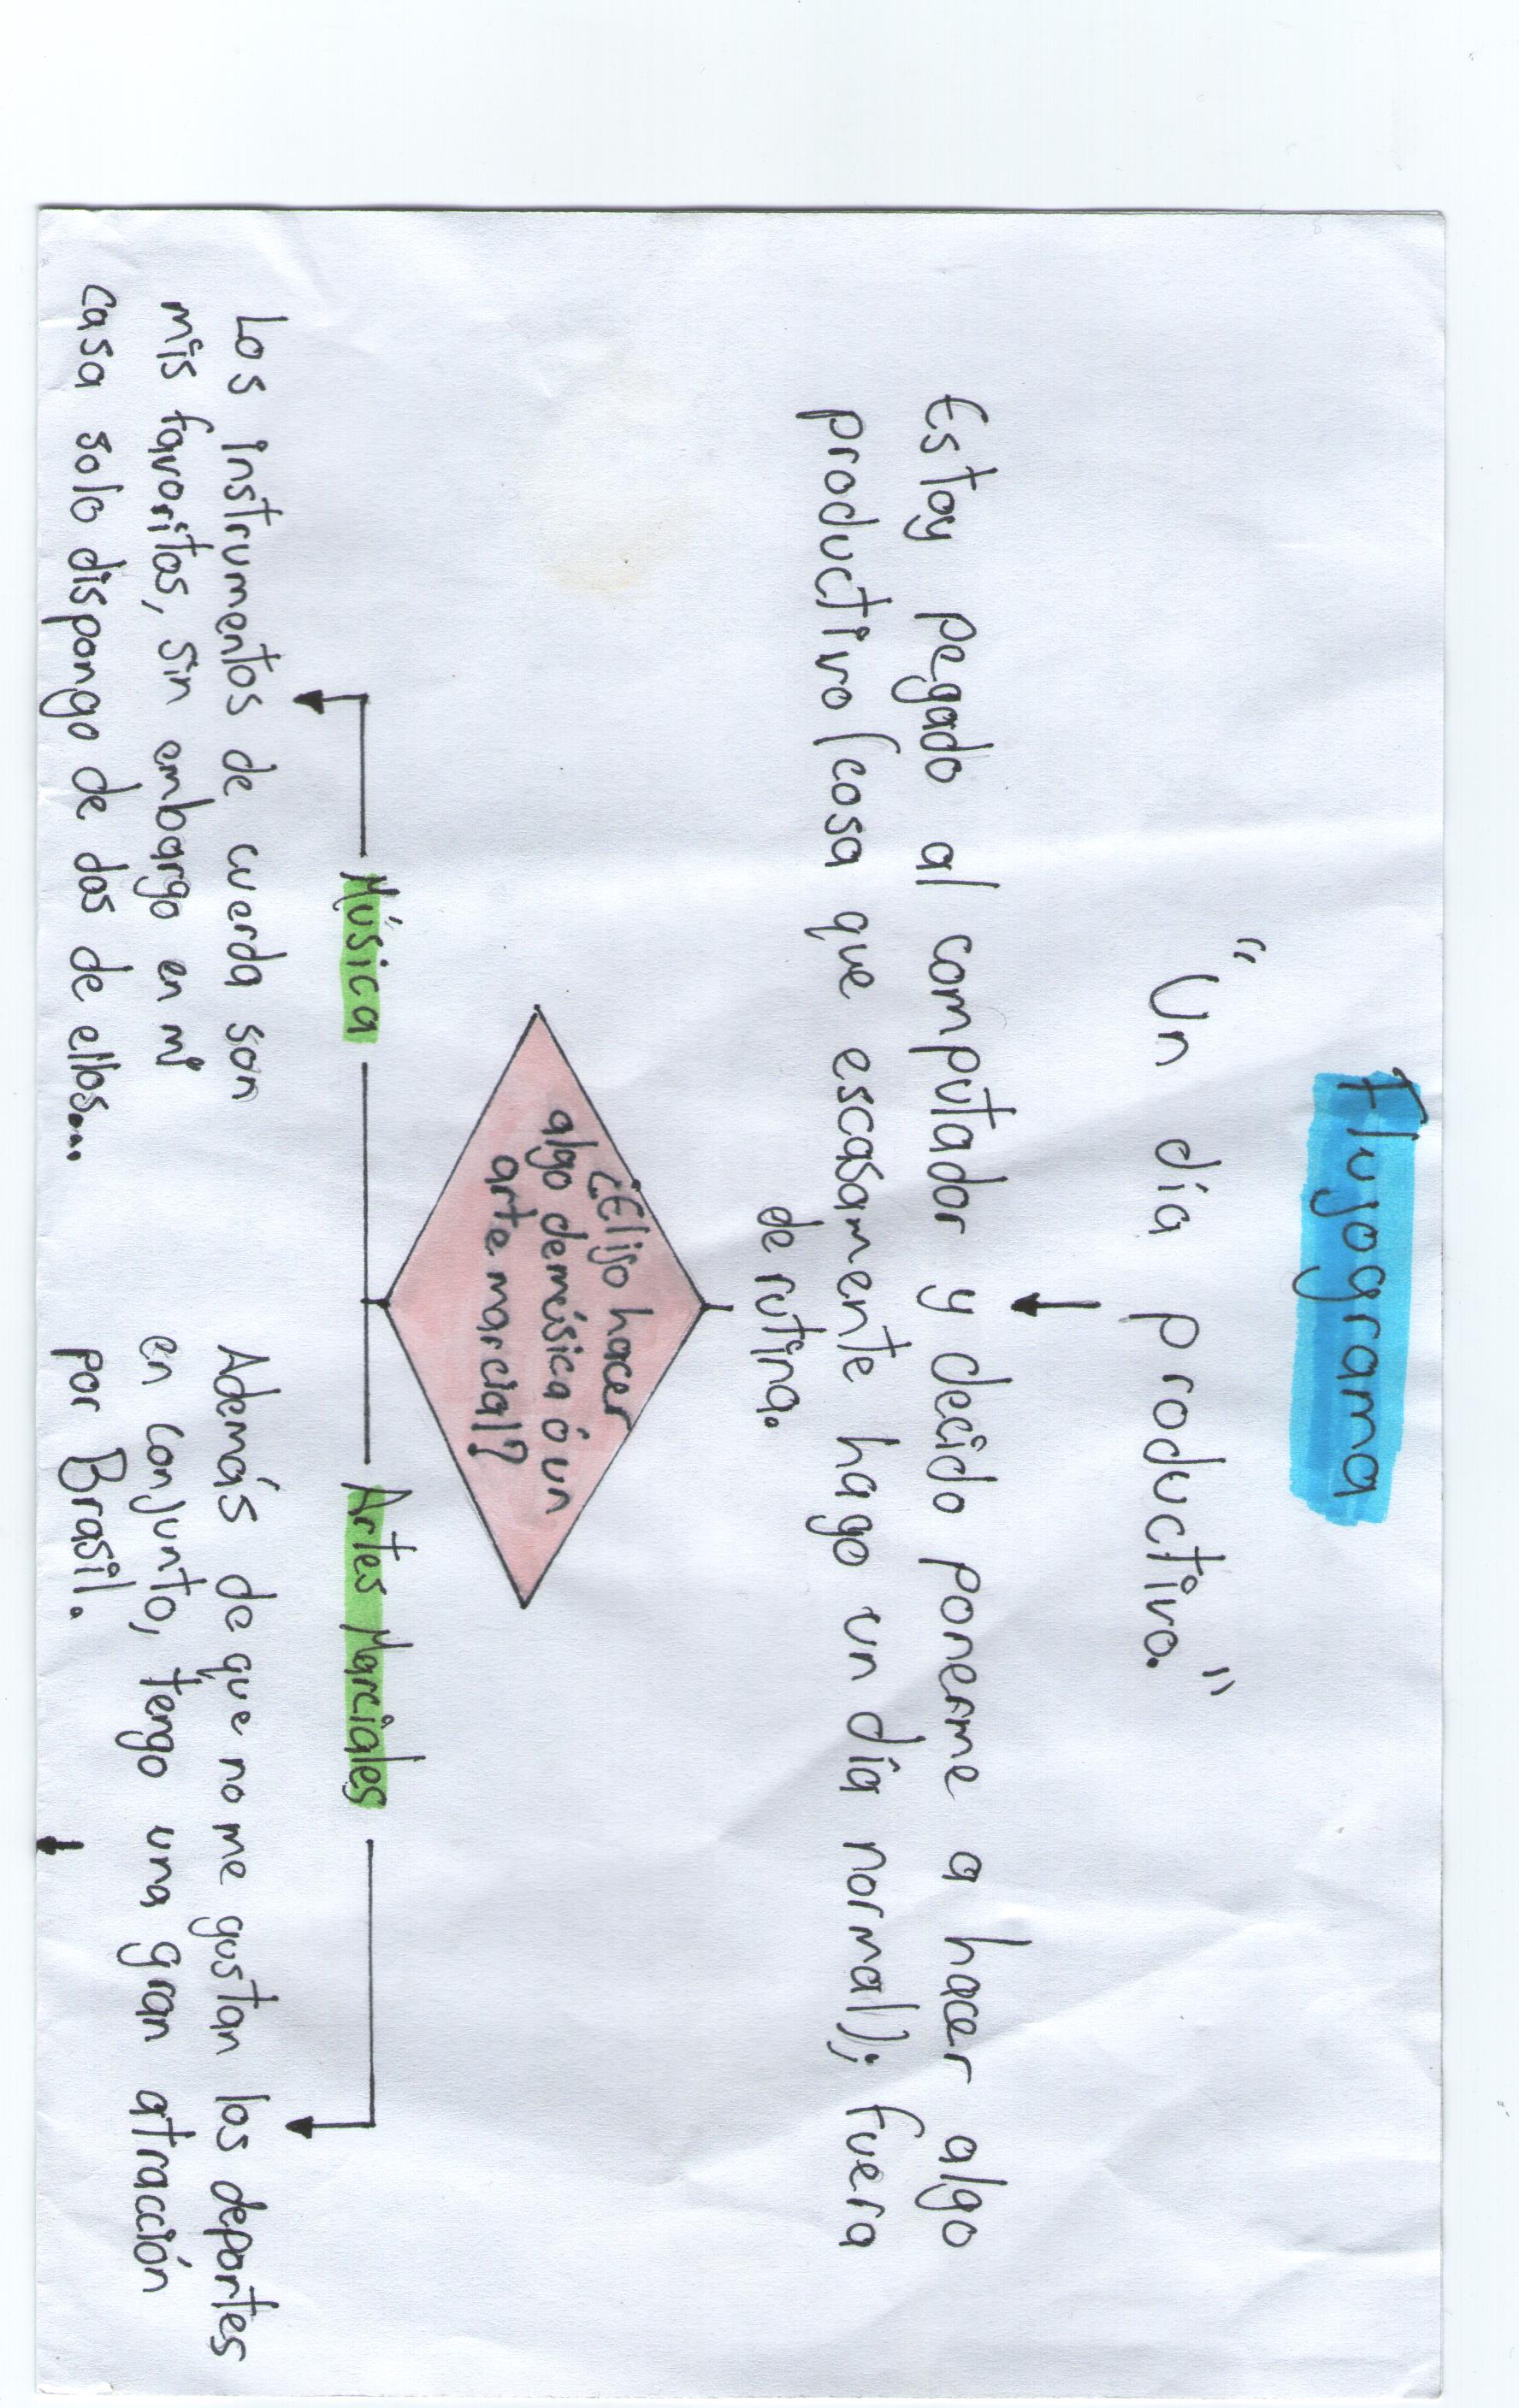 Flujograma
"Un día productivo."
Estoy pegado al computador y decido ponerme a hacer algo
productivo (cosa que escasamente hago un día normal); fuera
de rutina.
¿Elijo hacer
algo de música ó un
arte marcial?
Música
Artes Marciales
Los instrumentos de cuerda son
mis favoritos, sin embargo en mi
casa solo dispongo de dos de ellos...
Además de que no me gustan los deportes
en conjunto, tengo una gran atracción
por Brasil.